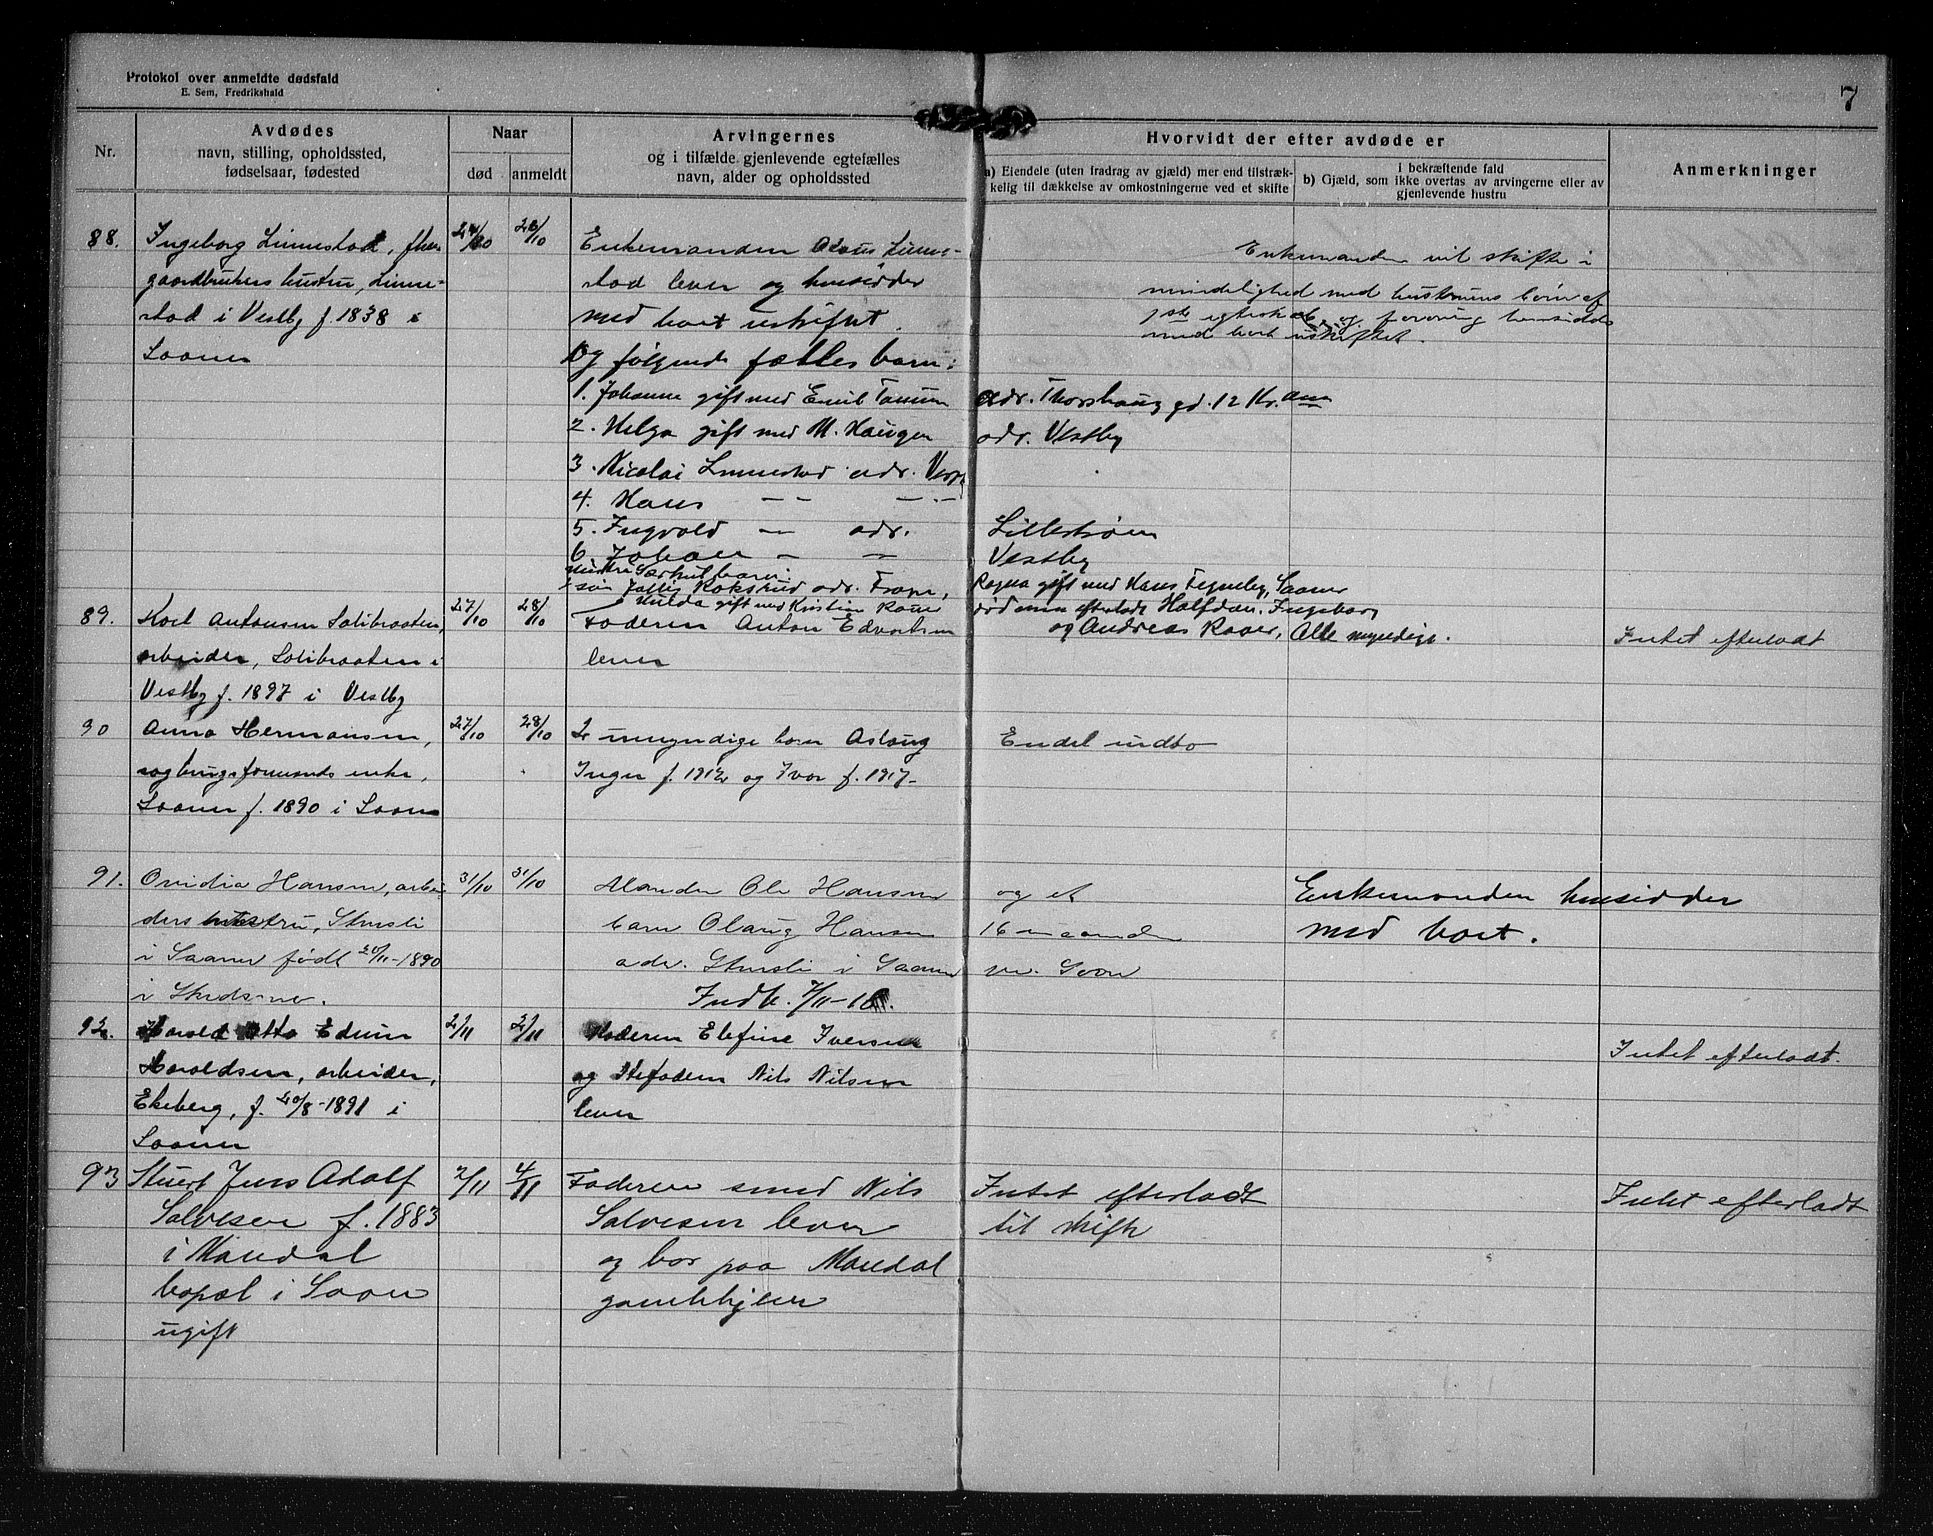 Protokol over anmeldte dødsfald
E. Sem, Fredrikshald
7
Nr.
Avdødes
navn, stilling, opholdssted,
fødselsaar, fødested
Naar
død
anmeldt
Arvingernes
og i tilfælde gjenlevende egtefælles
navn, alder og opholdssted
Hvorvidt der efter avdøde er
a) Eiendele (uten fradrag av gjæld) mer end tilstræk-
kelig til dækkelse av omkostningerne ved et skifte
i bekræftende fald
b) Gjæld, som ikke overtas av arvingerne eller av
gjenlevende hustru
Anmerkninger
88.
Ingeborg Linnestad, fhv.
gaardbrukers hustru, Linne-
stad i Vestby f. 1838 i
Saaner
24/10
26/10
Enkemanden Olaus Linne-
stad lever og hensidder
med boet uskiftet.
Og følgende fælles barn:
1. Johanne gift med Emil Tanum
2. Helga gift med M. Haugen
3. Nicolai Linnestad adr.
4. Hans — — — . —
5. Ingvald — adr.
6. Johan — —
særkulbarn:
Rokstrud adr. Frogn,
Hulda gift med Kristian Raner
Enkemanden vil skifte i
mindelighed med hustruens børn af
1ste egteskab, og forøvrig hensidde
med boet uskiftet.
adr. Thorshaug gd. 12 Kr.ania
adr. Vestby
Lillestrøm
Vestby
Ragna gift med Hans Tegneby, Saaner
død men efterlodt Halfdan, Ingeborg
og Andreas Raaer, Alle myndige.
89.
Karl Antonsen Solibraaten,
arbeider, Solibraaten i
Vestby f. 1897 i Vestby
27/10
28/10
Faderen Anton Edvartsen
lever
Intet efterladt
90
Anna Hermansen,
sagbrugsformands enke,
Saaner f. 1890 i Saaner
27/10
28/10
2 umyndige barn Aslaug
Inger f. 1912 og Ivar f. 1917-
Endel indbo
91.
Ovidia Hansen, arbei-
ders hustru, Stursli
i Saaner født 20/11-1890
i Skedsmo.
31/10
31/10
Manden Ole Hansen
barn Olaug Hansen
adr. Stursli i Saaner
Indb. 7/11-18.
og et
16 maaneder
pr. Soon
Enkemanden hensidder
med boet.
92.
Harald Otto Edvin
Haraldsen, arbeider,
Ekeberg, f. 20/8-1891 i
Saaner
2/11
2/11
Moderen Elefine Iversen
og Stefaderen Nils Nilsen
lever
Intet efterladt.
93
Stuert Jens Adolf
Salvesen f. 1883
i Mandal
bopæl i Soon
ugift
2/11
4/11
Faderen smed Nils
Salvesen lever
og bor paa Mandal
gamlehjem
Intet efterladt
til skifte
Intet efterladt